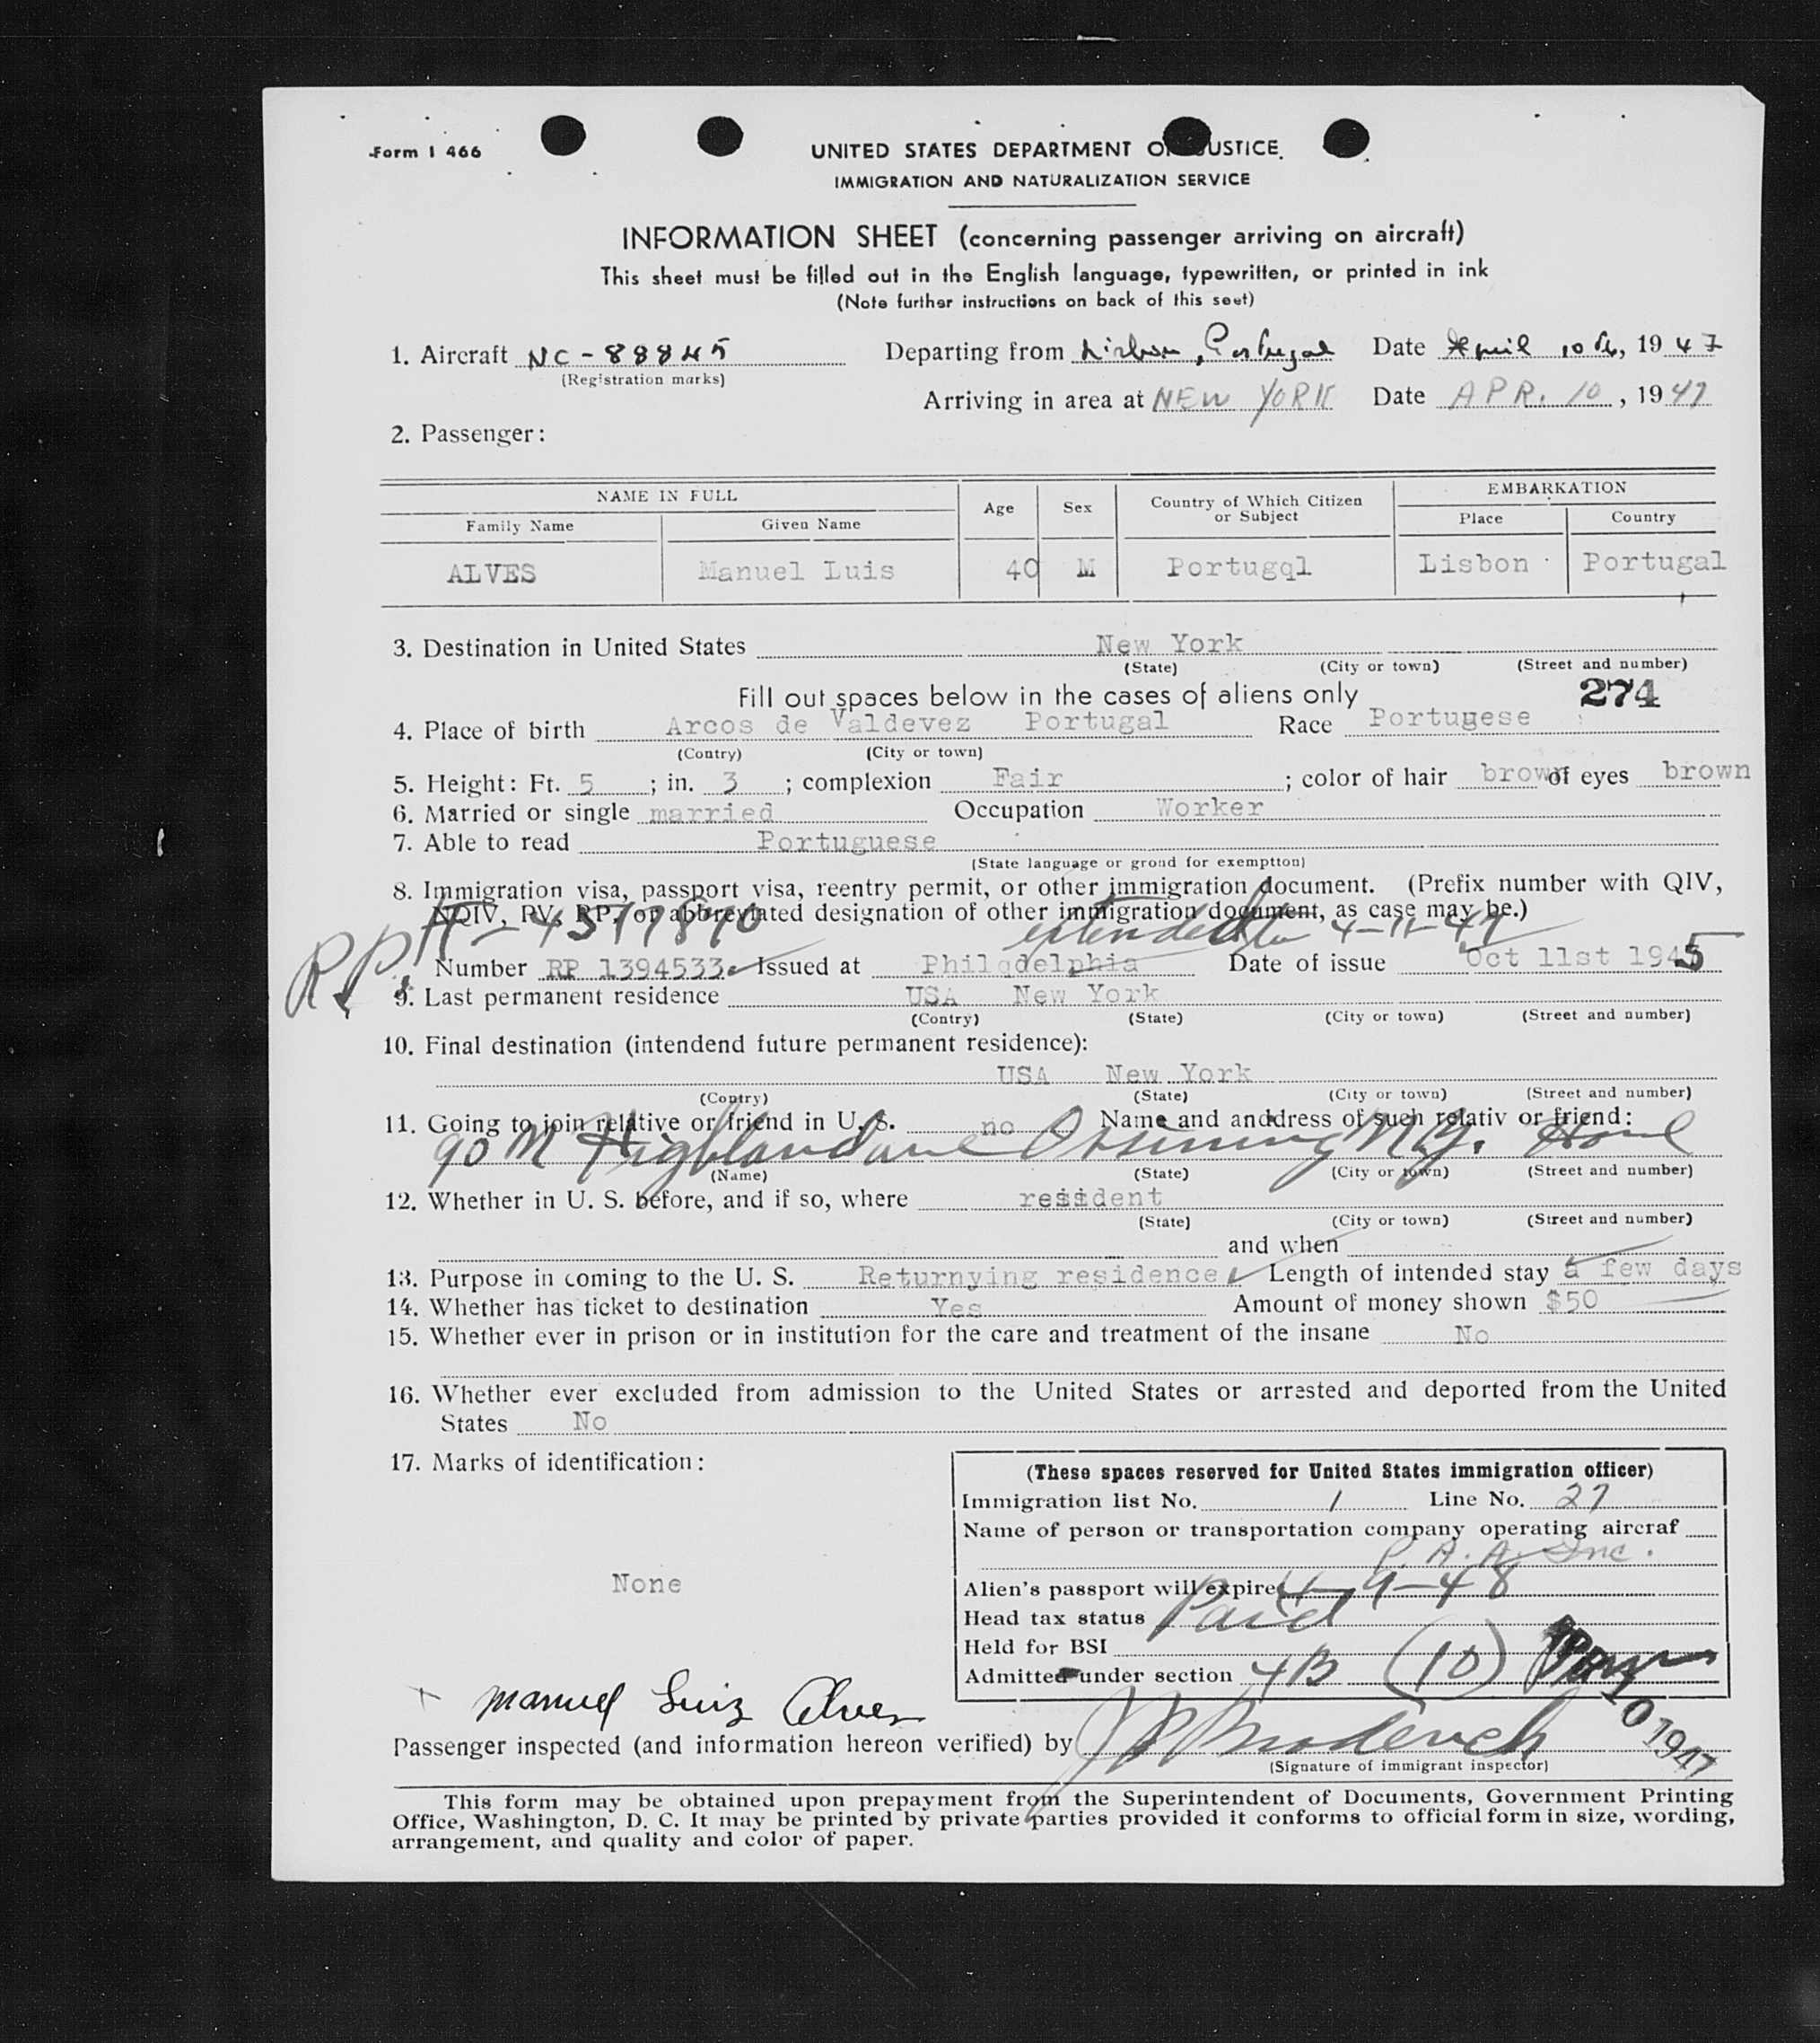 Form I 466
UNITED STATES DEPARTMENT OF JUSTICE
IMMIGRATION AND NATURALIZATION SERVICE
INFORMATION SHEET (concerning passenger arriving on aircraft)
This sheet must be filled out in the English language, typewritten, or printed in ink
(Note further instructions on back of this seet)
1. Aircraft NC-88845 Departing from Lisbon, Portugal Date April 10th, 1947
(Registration marks)
Arriving in area at NEW YORK Date APR. 10, 1947
2. Passenger:
NAME IN FULL Age Sex Country of Which Citizen or Subject EMBARKATION
Family Name Given Name Place Country
ALVES Manuel Luis 40 M Portugql Lisbon Portugal
3. Destination in United States New York
(State) (City or town) (Street and number)
Fill out spaces below in the cases of aliens only 274
4. Place of birth Arcos de Valdevez Portugal Race Portugese
(Contry) (City or town)
5. Height: Ft. 5 ; in. 3 ; complexion Fair ; color of hair brown of eyes brown
6. Married or single married Occupation Worker
7. Able to read Portuguese
(State language or groud for exemptton)
8. Immigration visa, passport visa, reentry permit, or other immigration document. (Prefix number with QIV,
NQIV, PV, RP, or abbreviated designation of other immigration document, as case may be.)
extended to 4-11-47
RP
Number RP 1394533 Issued at Philqdelphia Date of issue Oct 11st 1945
9. Last permanent residence USA New York
(Contry) (State) (City or town) (Street and number)
10. Final destination (intendend future permanent residence):
USA New York
(Contry) (State) (City or town) (Street and number)
11. Going to join relative or friend in U. S. no Name and anddress of such relativ or friend:
90 N Highland ave Ossining N.Y.
(Name) (State) (City or town) (Street and number)
12. Whether in U. S. before, and if so, where resident
(State) (City or town) (Street and number)
and when
13. Purpose in coming to the U. S. Returnying residence Length of intended stay a few days
14. Whether has ticket to destination Yes Amount of money shown $50
15. Whether ever in prison or in institution for the care and treatment of the insane No
16. Whether ever excluded from admission to the United States or arrested and deported from the United
States No
17. Marks of identification:
None
(These spaces reserved for United States immigration officer)
Immigration list No. 1 Line No. 27
Name of person or transportation company operating aircraf
P. A. A. Inc.
Alien's passport will expire 4-9-48
Head tax status Paid
Held for BSI
Admitted under section 4B (10)
APR 10 1947
Manuel Luiz Alves
Passenger inspected (and information hereon verified) by
(Signature of immigrant inspector)
This form may be obtained upon prepayment from the Superintendent of Documents, Government Printing
Office, Washington, D. C. It may be printed by private parties provided it conforms to official form in size, wording,
arrangement, and quality and color of paper.